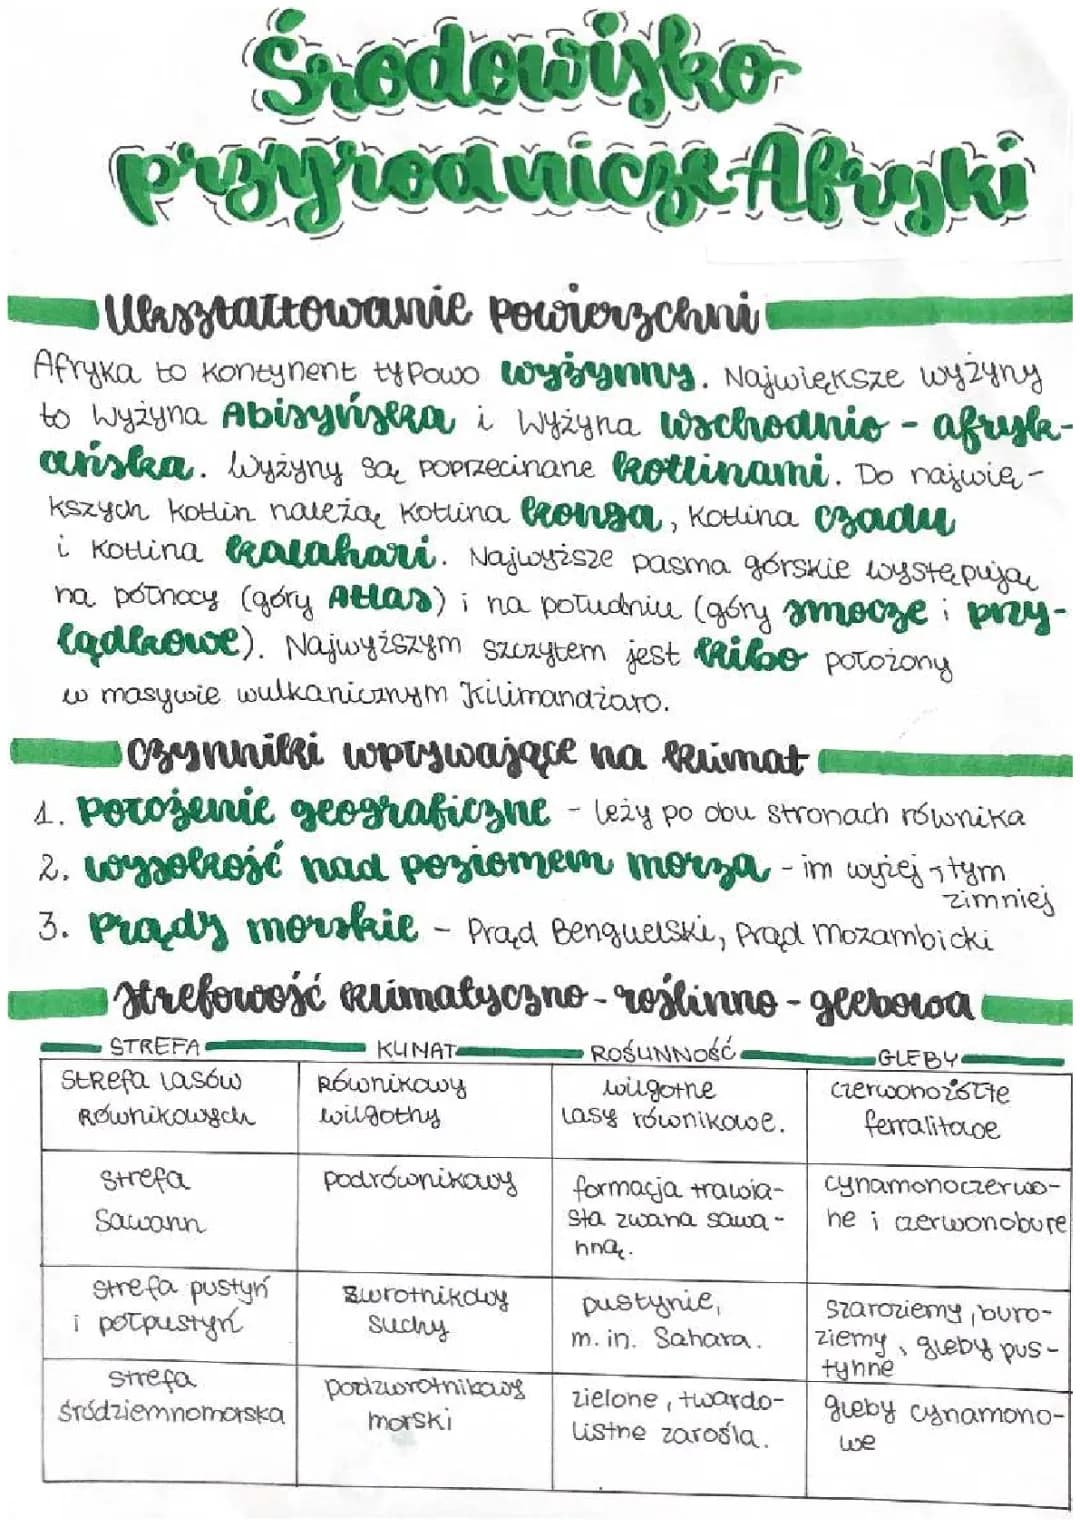 Środowisko
przyrodnicze Afryki
Ukształtowanie powierzchni
Afryka to kontynent typowo wyżynny. Największe wyżyny
to Wyżyna Abisyńska i Wyżyna wschodnio - afryk-
ańska. Wyżyny są poprzecinane kotlinami. Do najwię-
kszych kotlin należą kotlina konga, kotlina czadu
i kotlina kalahari. Najwyższe pasma górskie występują
na północy (góry Atlas) i na południu (góry smocze i przy-
lądkowe). Najwyższym szczytem jest kibo położony
w masywie wulkanicznym Kilimandżaro.
czynniki wpływające na klimat
1. położenie geograficzne - leży po obu stronach równika
2. wysokość nad poziomem morza - im wyżej, tym
zimniej
3. Prądy morskie - Prąd Benguelski, Prąd Mozambicki
strefowość klimatyczno - roślinno - glebowa
STREFA KLIMAT ROŚLINNOŚĆ GLEBY
strefa lasów równikowy wilgotne czerwonożółte
równikowych wilgotny lasy równikowe. ferralitowe
strefa podrównikowy formacja trawia- cynamonoczerwo-
sawann sta zwana sawa- ne i czerwonobure
nną.
strefa pustyń zwrotnikowy pustynie, szaroziemy, buro-
i półpustyń suchy m. in. Sahara. ziemy, gleby pus-
tynne
strefa podzwrotnikowy zielone, twardo- gleby cynamono-
śródziemnomorska morski listne zarośla. we